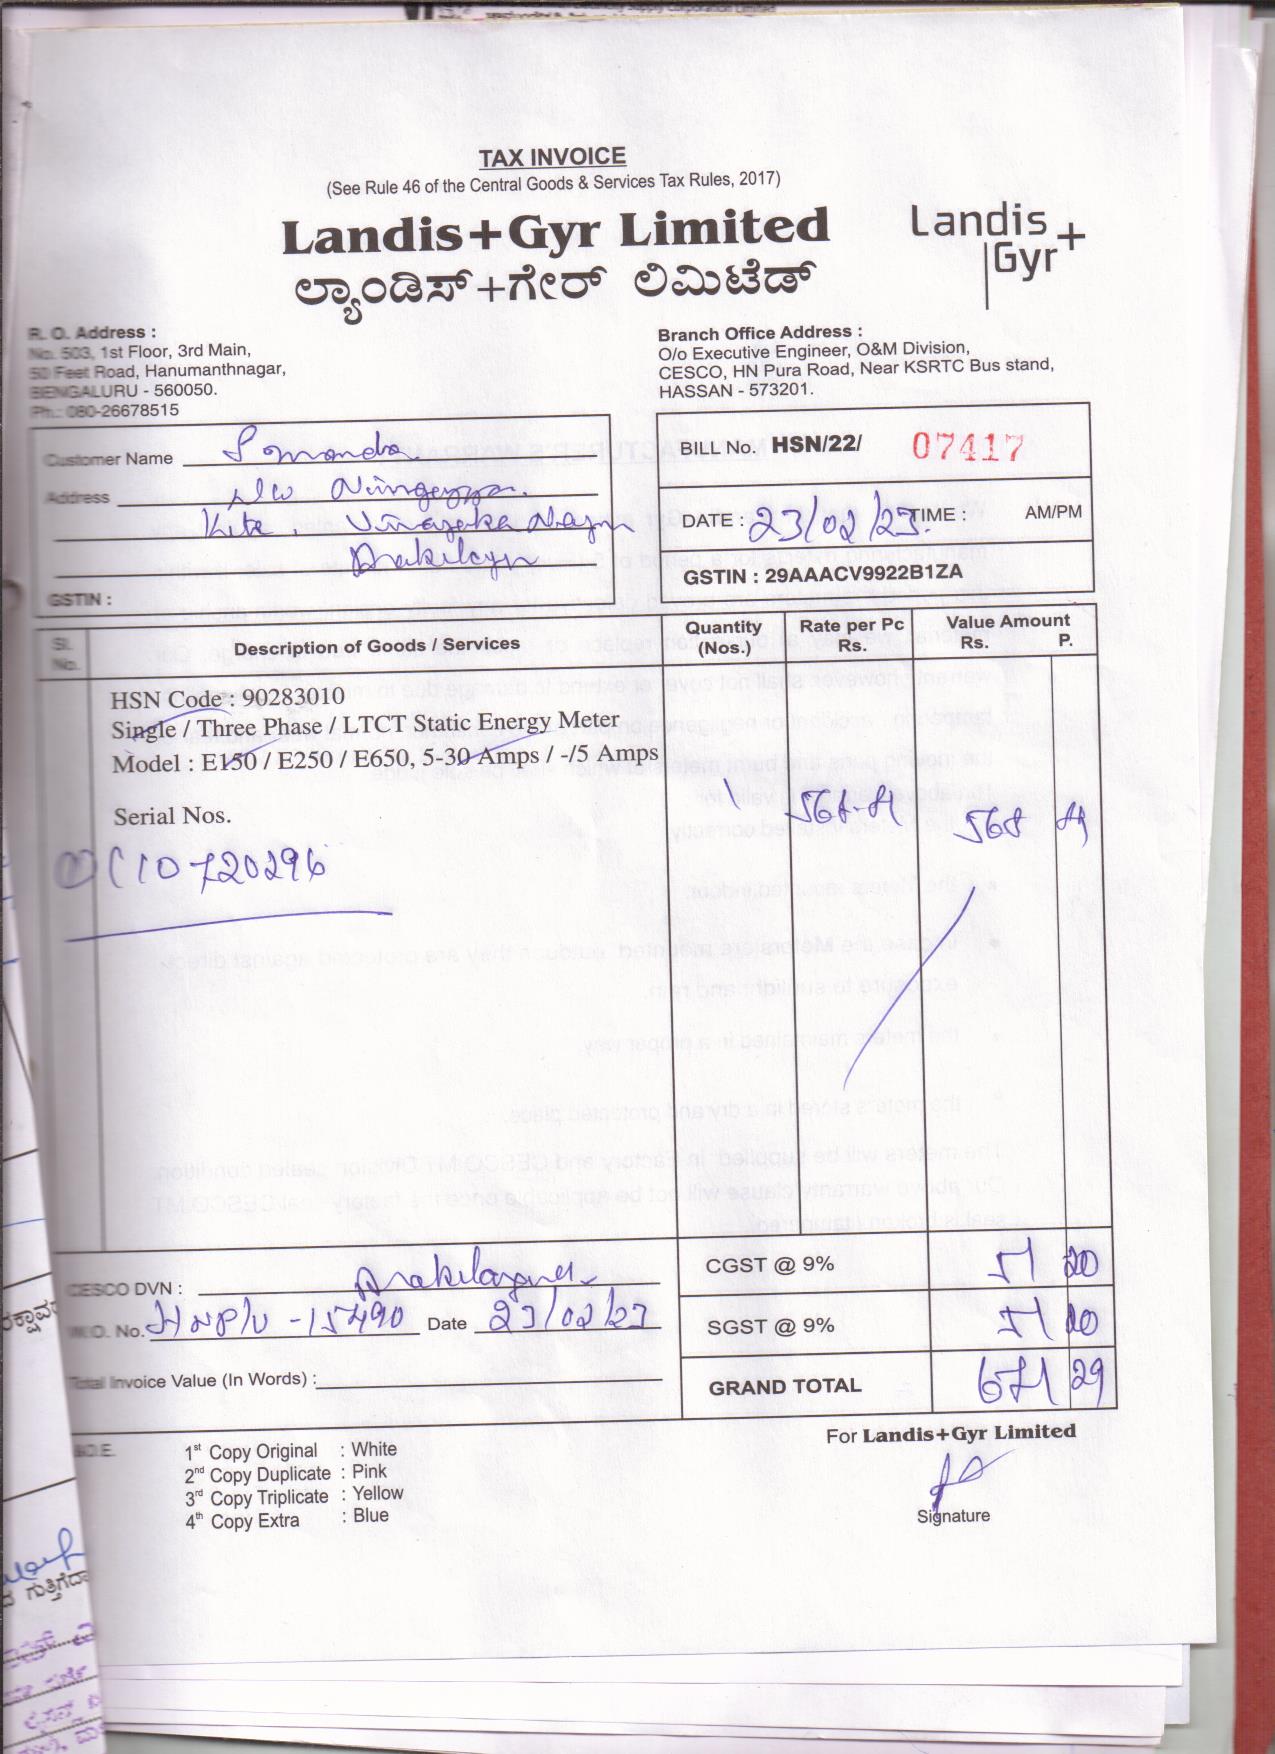 TAX INVOICE
(See Rule 46 of the Central Goods & Services Tax Rules, 2017)
Landis+Gyr Limited
ಲ್ಯಾಂಡಿಸ್+ಗೇರ್ ಲಿಮಿಟೆಡ್
Landis
Gyr+
R. O. Address :
No. 503, 1st Floor, 3rd Main,
50 Feet Road, Hanumanthnagar,
BENGALURU - 560050.
Ph.: 080-26678515
Branch Office Address :
O/o Executive Engineer, O&M Division,
CESCO, HN Pura Road, Near KSRTC Bus stand,
HASSAN - 573201.
Customer Name
Address
GSTIN :
BILL No. HSN/22/ 07417
DATE : 23/02/23. TIME : AM/PM
GSTIN : 29AAACV9922B1ZA
Sl. No. Description of Goods / Services Quantity (Nos.) Rate per Pc Rs. Value Amount Rs. P.
HSN Code : 90283010
Single / Three Phase / LTCT Static Energy Meter
Model : E150 / E250 / E650, 5-30 Amps / -/5 Amps
1 568
Serial Nos.
10720296
CESCO DVN :
W.O. No. 15490 Date 23/02/23
Total Invoice Value (In Words) :
CGST @ 9% 51 20
SGST @ 9% 51 20
GRAND TOTAL 671 29
E.&O.E.
1st Copy Original : White
2nd Copy Duplicate : Pink
3rd Copy Triplicate : Yellow
4th Copy Extra : Blue
For Landis+Gyr Limited
Signature